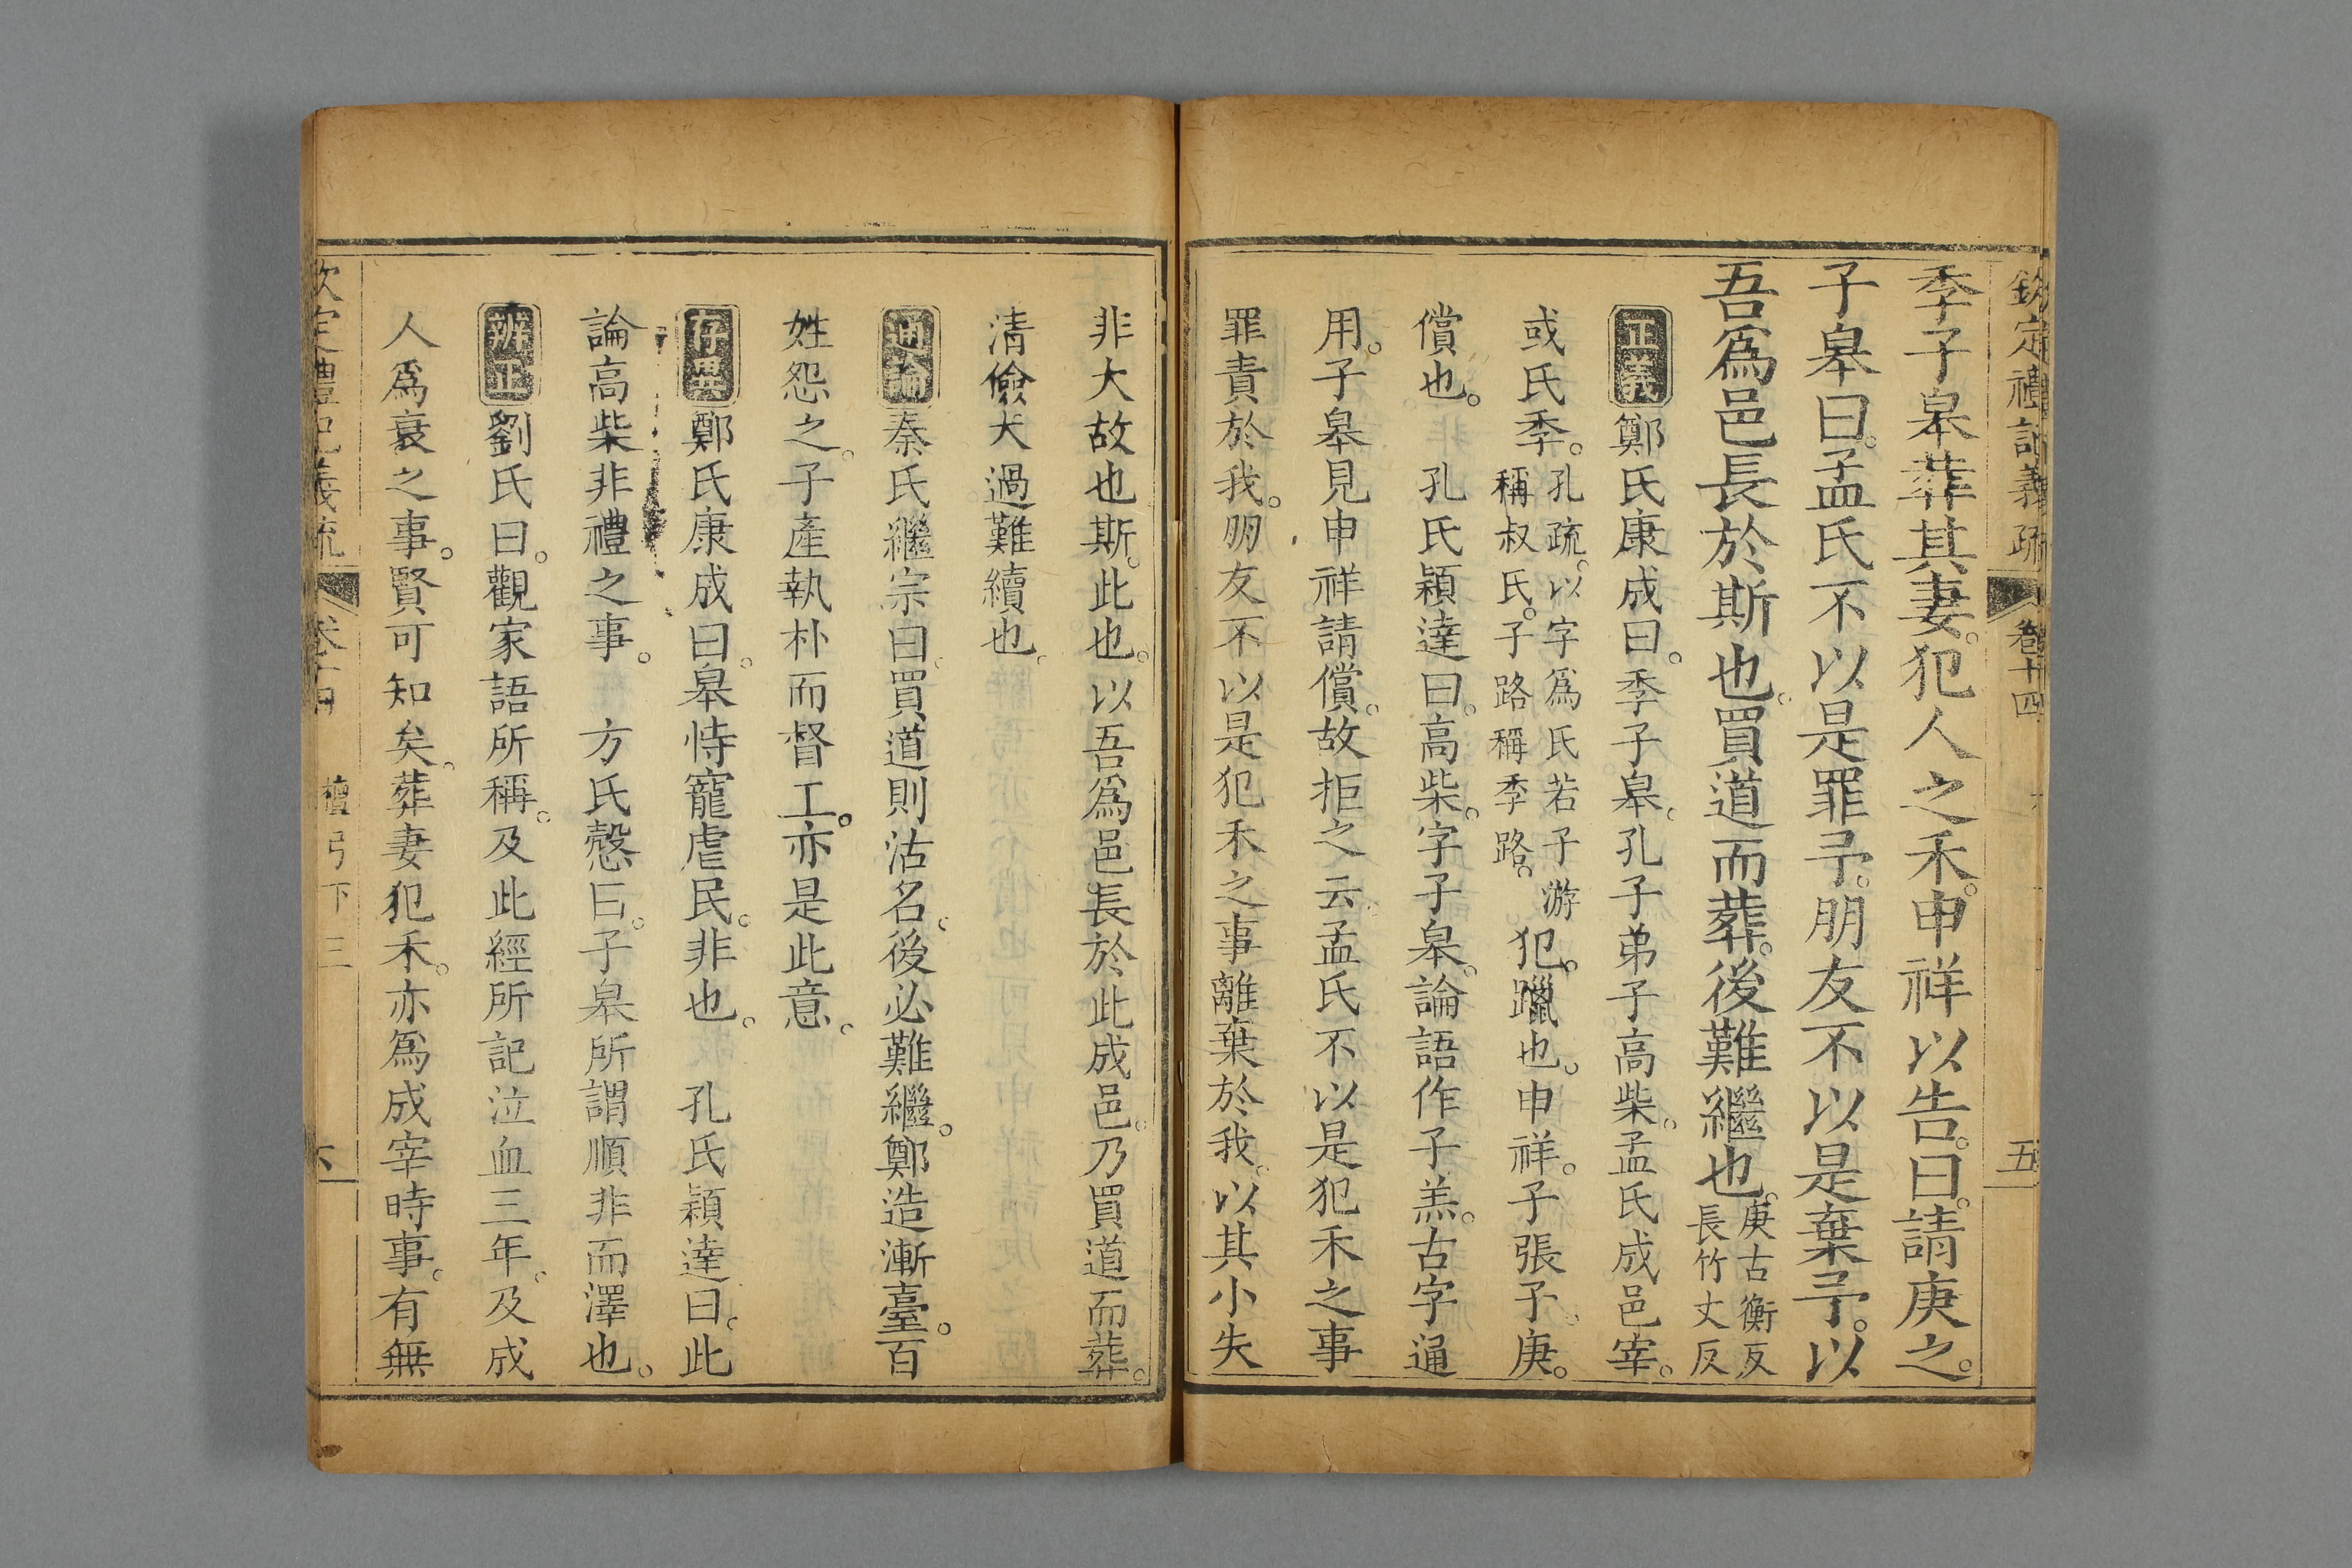 欽定禮記義疏 卷十四 五
季子皋葬其妻。犯人之禾。申祥以告。曰。請庚之。
子皋曰。孟氏不以是罪予。朋友不以是棄予。以
吾爲邑長於斯也。買道而葬。後難繼也。庚古衡反
長竹丈反
正義鄭氏康成曰。季子皋。孔子弟子高柴。孟氏成邑宰。
或氏季。孔疏。以字爲氏若子游
稱叔氏。子路稱季路。犯。躐也。申祥。子張子。庚。
償也。 孔氏穎達曰。高柴。字子皋。論語作子羔。古字通
用。子皋見申祥請償。故拒之云。孟氏不以是犯禾之事
罪責於我。朋友不以是犯禾之事離棄於我。以其小失
非大故也斯。此也。以吾爲邑長於此成邑。乃買道而葬。
清儉大過難續也。
通論秦氏繼宗曰。買道則沽名。後必難繼。鄭造漸臺。百
姓怨之。子產執朴而督工。亦是此意。
存異鄭氏康成曰。皋恃寵虐民。非也。 孔氏穎達曰。此
論高柴非禮之事。 方氏慤曰。子皋所謂順非而澤也。
辨正劉氏曰。觀家語所稱。及此經所記泣血三年。及成
人爲衰之事。賢可知矣。葬妻犯禾。亦爲成宰時事。有無
欽定禮記義疏 卷十四 檀弓下三 六